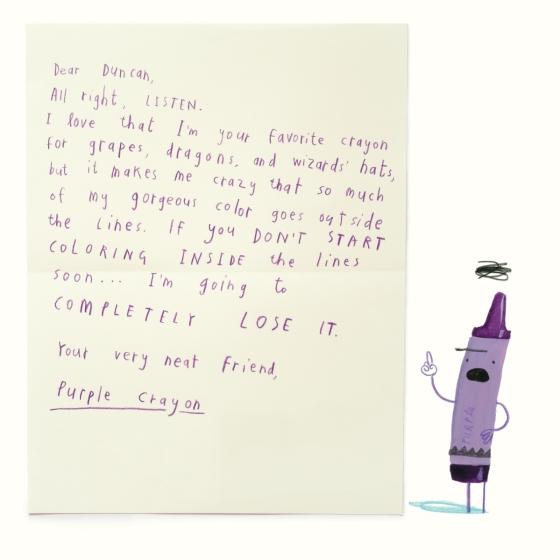 Dear Duncan,
All right, LISTEN.
I love that I'm your favorite crayon
for grapes, dragons, and wizards' hats,
but it makes me crazy that so much
of my gorgeous color goes outside
the lines. If you DON'T START
COLORING INSIDE the lines
soon... I'm going to
COMPLETELY LOSE IT.
Your very neat friend,
Purple Crayon
PURPLE